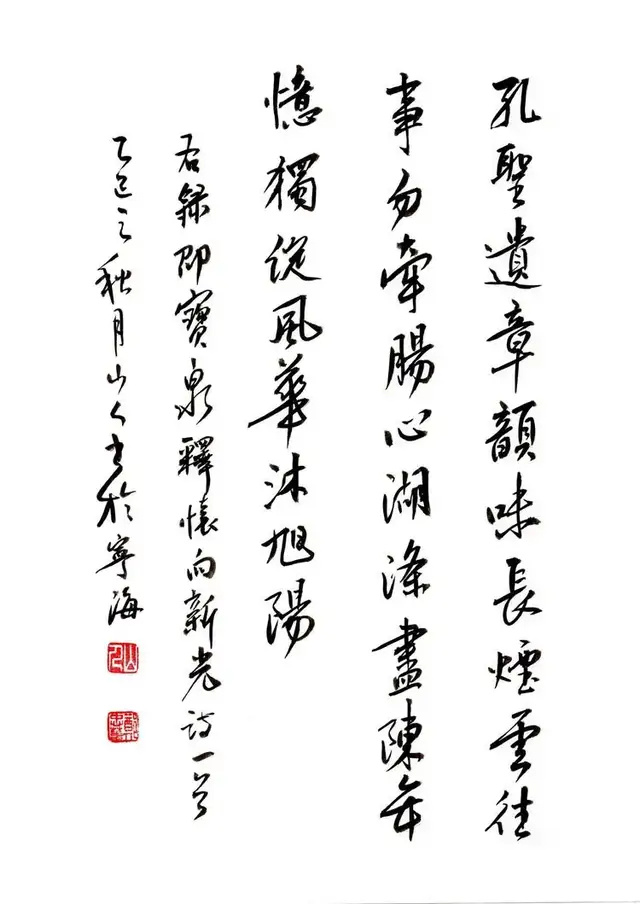 孔聖遺章韻味長煙雲往
事勿牽腸心湖滌盡陳年
憶獨綻風華沐旭陽
右錄即寶泉釋懷向新光詩一首
乙巳之秋月山人書於寧海
山人